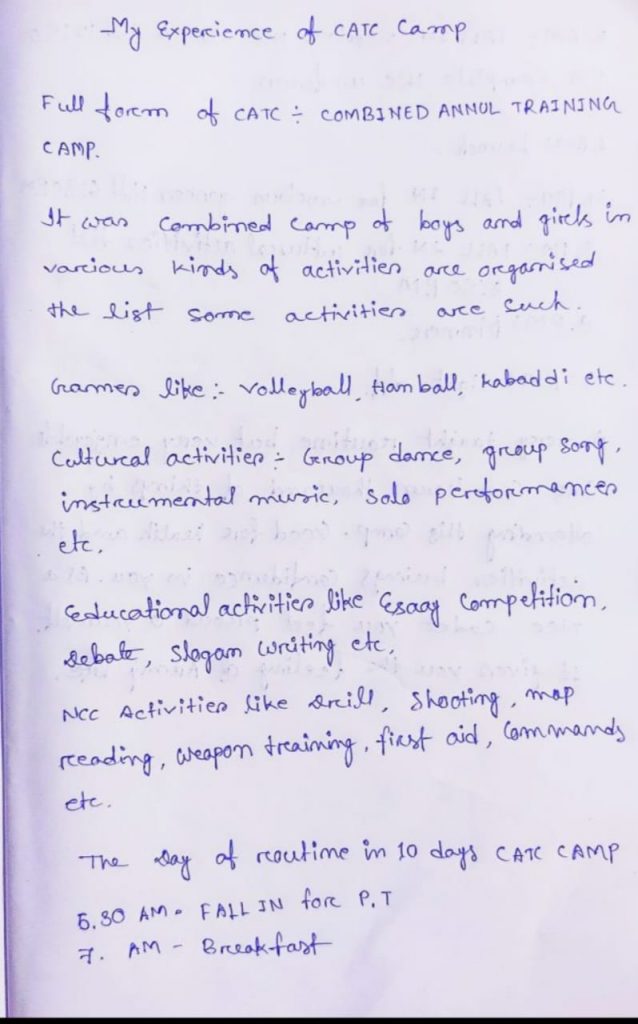 My Experience of CATC Camp
Full form of CATC ÷ COMBINED ANNUL TRAINING
CAMP.
It was Combined Camp of boys and girls in
various kinds of activities are organised
the list some activities are such.
Games like :- Volleyball, Hanball, kabaddi etc.
Cultural activities ÷ Group dance, group song,
instrumental music, Solo performances
etc.
Seducational activities like Esaay Competition,
debate, Slogan writing etc,
NCC Activities like Drill, Shooting, map
reading, weapon training, first aid, Commands
etc.
The Day of routine in 10 days CATC CAMP
5.30 AM - FALL IN for P.T
7. AM - Breakfast